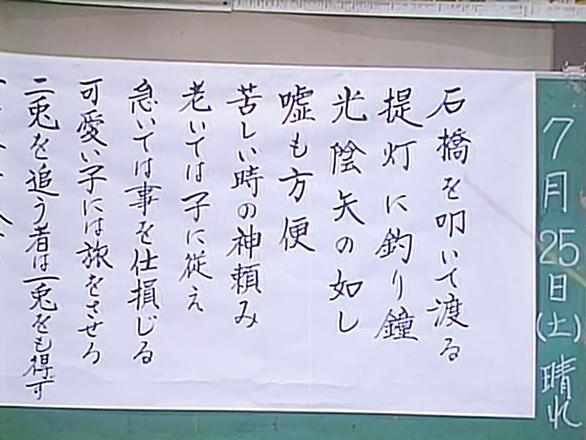 7月25日(土)晴れ
石橋を叩いて渡る
提灯に釣り鐘
光陰矢の如し
嘘も方便
苦しい時の神頼み
老いては子に従え
急いては事を仕損じる
可愛い子には旅をさせろ
二兎を追う者は一兎をも得ず